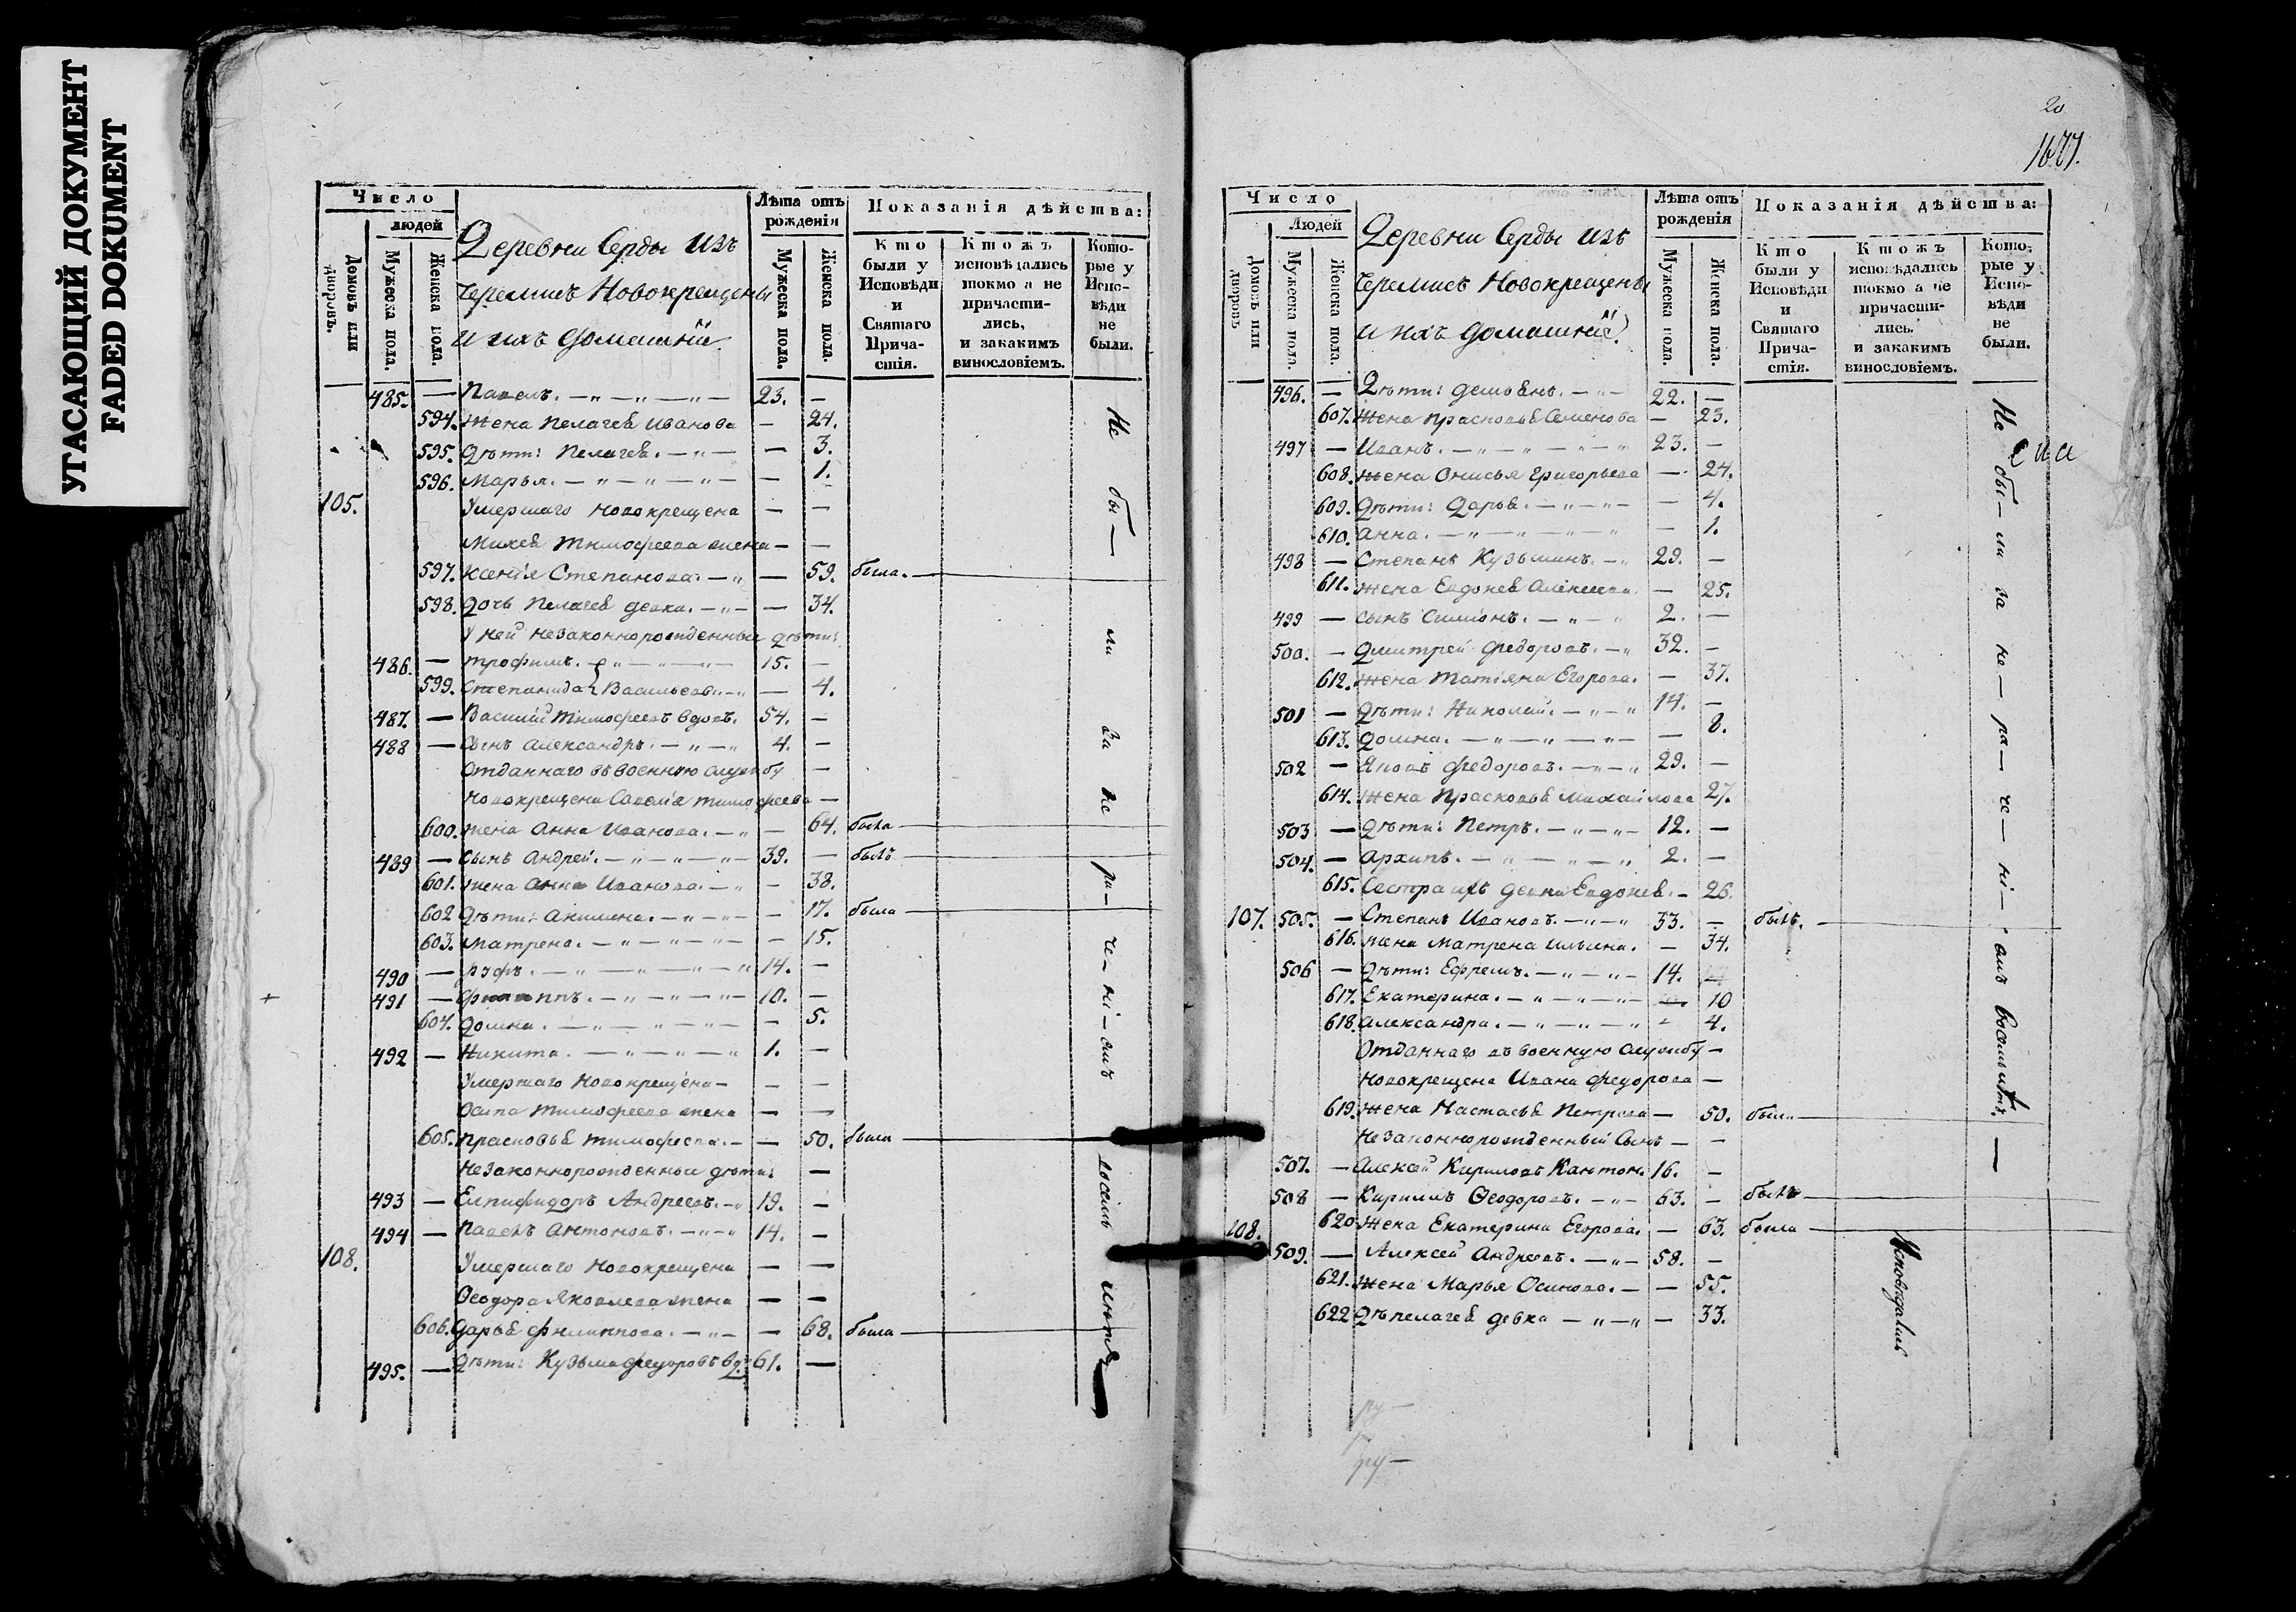 УТАСАЮЩИЙ ДОКУМЕНТ
FADED DOKUMENT
Число
людей
Домовъ или дворовъ.
Мужеска пола.
Женска пола.
Деревни Серды изъ
черемисъ Новокрещены
и ихъ домашнïй
Лѣта отъ рожденія
Мужеска пола.
Женска пола.
Показанія дѣйства:
Кто были у Исповѣди и Святаго Прича-стія.
Ктожъ исповѣдались токмо а не причасти-лись, и закакимъ винословіемъ.
Кото-рые у Испо-вѣди не были.
485. — Павелъ. 23. —
594. жена Пелагея Иванова — 24.
595. дѣти: Пелагея. — 3.
596. Марья. — 1.
105. Умершаго новокрещена — —
Михея Тимофеева жена — —
597. Ксенїя Степанова. — 59. была.
598. дочь Пелагея девка. — 34.
У ней незаконнорожденныя дѣти:
486. — Трофимъ. 15. —
599. Степанида Васильевы — 4.
487. — Василïй Тимофеевъ вдовъ. 54. —
488 — сынъ Александръ. 4. —
Отданнаго въ военную службу —
новокрещена Савелïя Тимофеева —
600. жена Анна Иванова. — 64. была
489 — сынъ Андрей. 39. — былъ
601. жена Анна Иванова. — 38.
602 дѣти: Акилина. — 17. была
603. Матрена. — 15.
490 — Руфъ. 14. —
491 — Филиппъ. 10. —
604. Домна. — 5.
492 — Никита. 1. —
Умершаго новокрещена — —
Осипа Тимофеева жена — —
605. Прасковья Тимофеева. — 50. была
Незаконнорожденныя дѣти: —
493 — Елпифидоръ Андреевъ. 19. —
494 — Павелъ Антоновъ. 14. —
108. Умершаго новокрещена — —
Ѳеодора Яковлева жена — —
606. Дарья Филиппова. — 68. была
495. — дѣти: Кузьма Федоровъ вд. 61. —
Не бы — ли за не ра — че — нï — емъ восемь лѣтъ
20
1677.
Число
Людей
Домовъ или дворовъ
Мужеска пола.
Женска пола.
Деревни Серды изъ
черемисъ Новокрещены
и ихъ домашнïй
Лѣта отъ рожденія
Мужеска пола.
Женска пола.
Показанія дѣйства:
Кто были у Исповѣди и Святаго Прича-стія.
Ктожъ исповѣдались токмо а не причасти-лись. и закакимъ винословіемъ.
Кото-рые у Испо-вѣди не были.
496. — Дѣти: Демьянъ. 22. —
607. жена Прасковья Семенова — 23.
497 — Иванъ. 23. —
608. жена Онисья Григорьева — 24.
609. дѣти: Дарья. — 4.
610. Анна. — 1.
498 — Степанъ Кузьминъ. 29. —
611. жена Евдокея Алексеева. — 25.
499 — сынъ Симïонъ. 2. —
500. — Дмитрей Федоровъ. 32. —
612. жена Татïяна Егорова. — 37.
501 — дѣти: Николай. 14. —
613. Домна. — 8.
502 — Яковъ Федоровъ. 29. —
614. жена Прасковья Михайлова 27.
503 — дѣти: Петръ. 12. —
504. — Архипъ. 2. —
615. Сестра ихъ девка Евдокея. — 26.
107. 505. — Степанъ Ивановъ. 33. — былъ.
616. жена Матрена Ильина. — 34.
506 — дѣти: Ефремъ. 14.
617. Екатерина. 10
618. Александра. — 4.
Отданнаго въ военную службу —
новокрещена Ивана Федорова —
619. жена Настасья Петрова — 50. была
незаконнорожденный сынъ — —
507. — Алексей Кириловъ Кантон. 16. —
508 — Кириллъ Ѳеодоровъ. 63. — былъ
620 жена Екатерина Егорова. — 63. была
108. 509. — Алексей Андреевъ. 58. —
621. жена Марья Осипова. — 55.
622 Дѣ Пелагея девка — 33.
Исповѣдались
Не бы — ли за не — ра — че — нï — емъ восемь лѣтъ. —
ру —
ру —